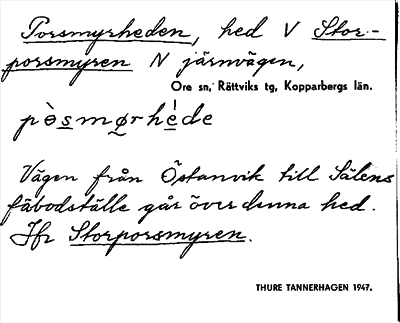 Porsmyrheden, hed V Stor-
porsmyren N järnvägen,
Ore sn, Rättviks tg, Kopparbergs län.
pò̱smø̱rhè̱de
Vägen från Östanvik till Sälens
fäbodställe går över denna hed.
Jfr Storporsmyren.
THURE TANNERHAGEN 1947.